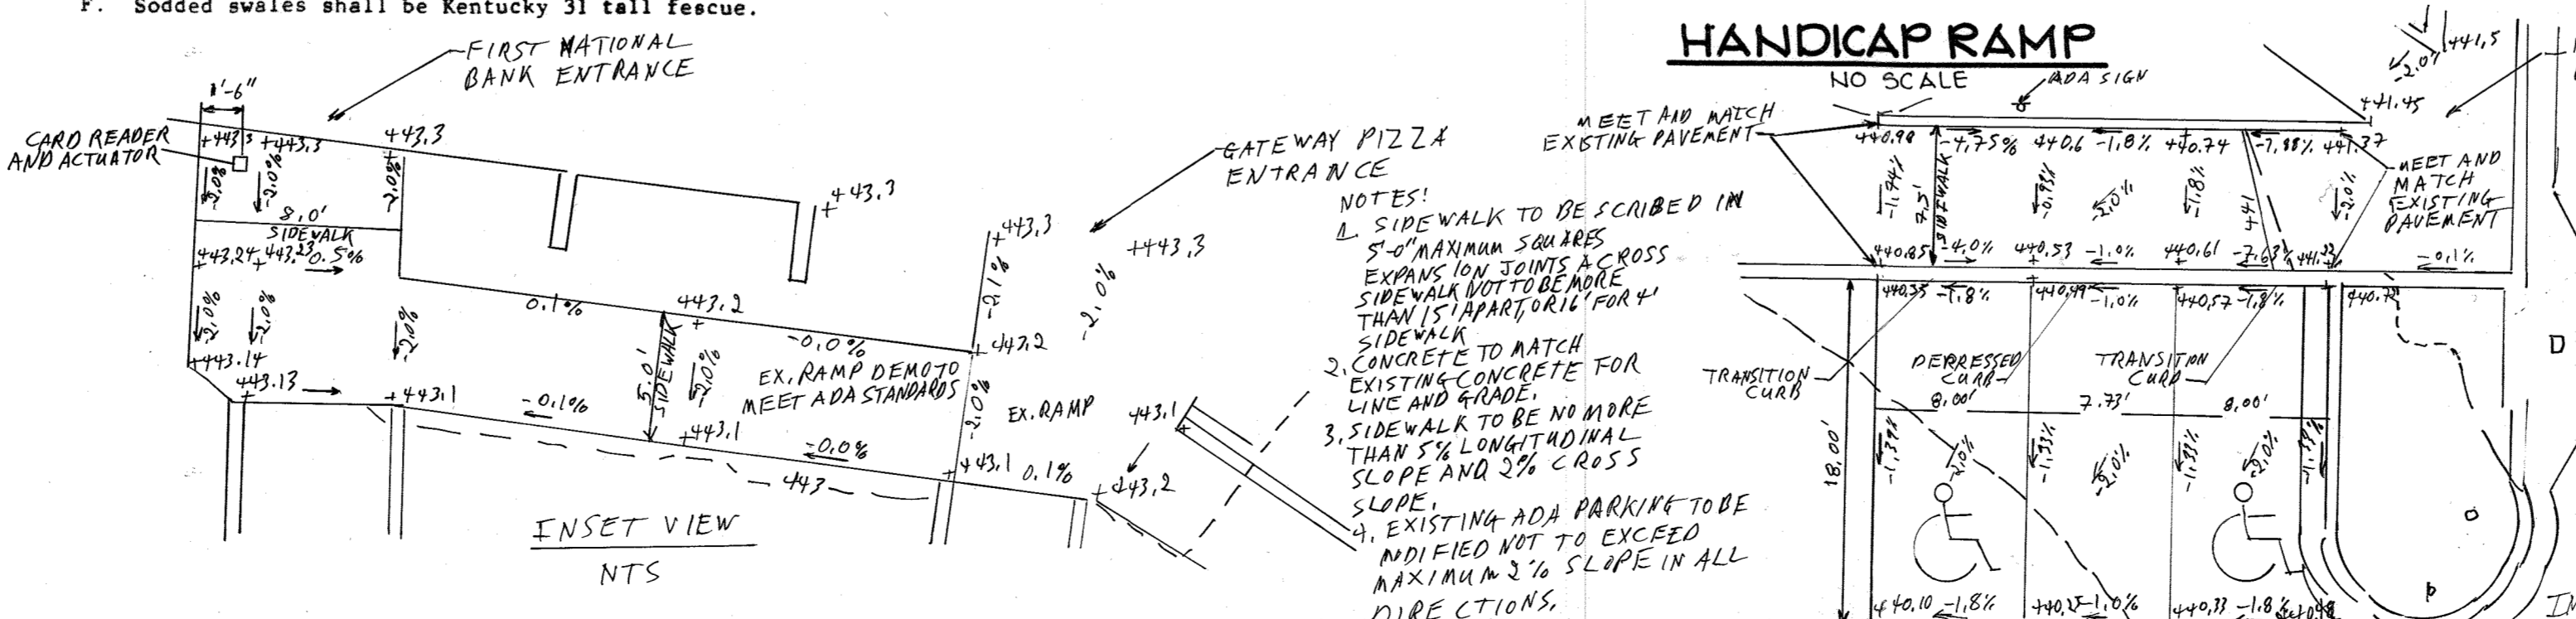 F. Sodded swales shall be Kentucky 31 tall fescue.
FIRST NATIONAL
BANK ENTRANCE
1'-6"
CARD READER
AND ACTUATOR
+443.3
+443.3
+443.3
-2.0%
-2.0%
-2.0%
8.0'
SIDEWALK
+443.24
+443.23
0.5%
-2.0%
-2.0%
-2.0%
+443.14
443.13
+443.1
0.1%
443.2
-0.0%
+443.3
5.0'
SIDEWALK
-2.0%
EX. RAMP DEMO TO
MEET ADA STANDARDS
-0.1%
+443.1
-0.0%
443
INSET VIEW
NTS
GATEWAY PIZZA
ENTRANCE
+443.3
+443.3
-2.1%
-2.0%
443.2
-2.0%
EX. RAMP
443.1
+443.1
0.1%
443.2
NOTES!
1. SIDEWALK TO BE SCRIBED IN
5'-0" MAXIMUM SQUARES
EXPANSION JOINTS ACROSS
SIDEWALK NOT TO BE MORE
THAN 15' APART, OR 16' FOR 4'
SIDEWALK
2. CONCRETE TO MATCH
EXISTING CONCRETE FOR
LINE AND GRADE.
3. SIDEWALK TO BE NO MORE
THAN 5% LONGITUDINAL
SLOPE AND 2% CROSS
SLOPE.
4. EXISTING ADA PARKING TO BE
MDIFIED NOT TO EXCEED
MAXIMUM 2% SLOPE IN ALL
DIRECTIONS.
HANDICAP RAMP
NO SCALE
ADA SIGN
MEET AND MATCH
EXISTING PAVEMENT
441.5
-2.0%
441.45
440.98
-4.75%
440.6
-1.8%
440.74
-7.88%
441.37
-1.74%
7.5'
SIDEWALK
-0.93%
-2.0%
-1.8%
441
-2.0%
MEET AND
MATCH
EXISTING
PAVEMENT
440.85
-4.0%
440.53
-1.0%
440.61
-7.63%
-0.1%
440.35
-1.8%
440.49
-1.0%
440.57
-1.8%
TRANSITION
CURB
DEPRESSED
CURB
TRANSITION
CURB
8.00'
7.73'
8.00'
18.00'
-1.39%
-2.0%
-1.33%
-2.0%
-1.33%
-2.0%
-1.39%
D
440.10
-1.8%
440.25
-1.0%
440.33
-1.8%